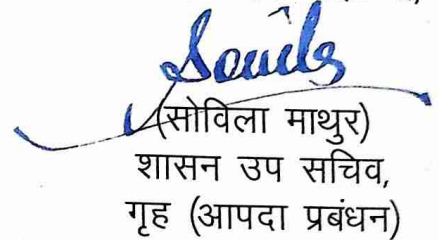 (सोविला माथुर)
शासन उप सचिव,
गृह (आपदा प्रबंधन)